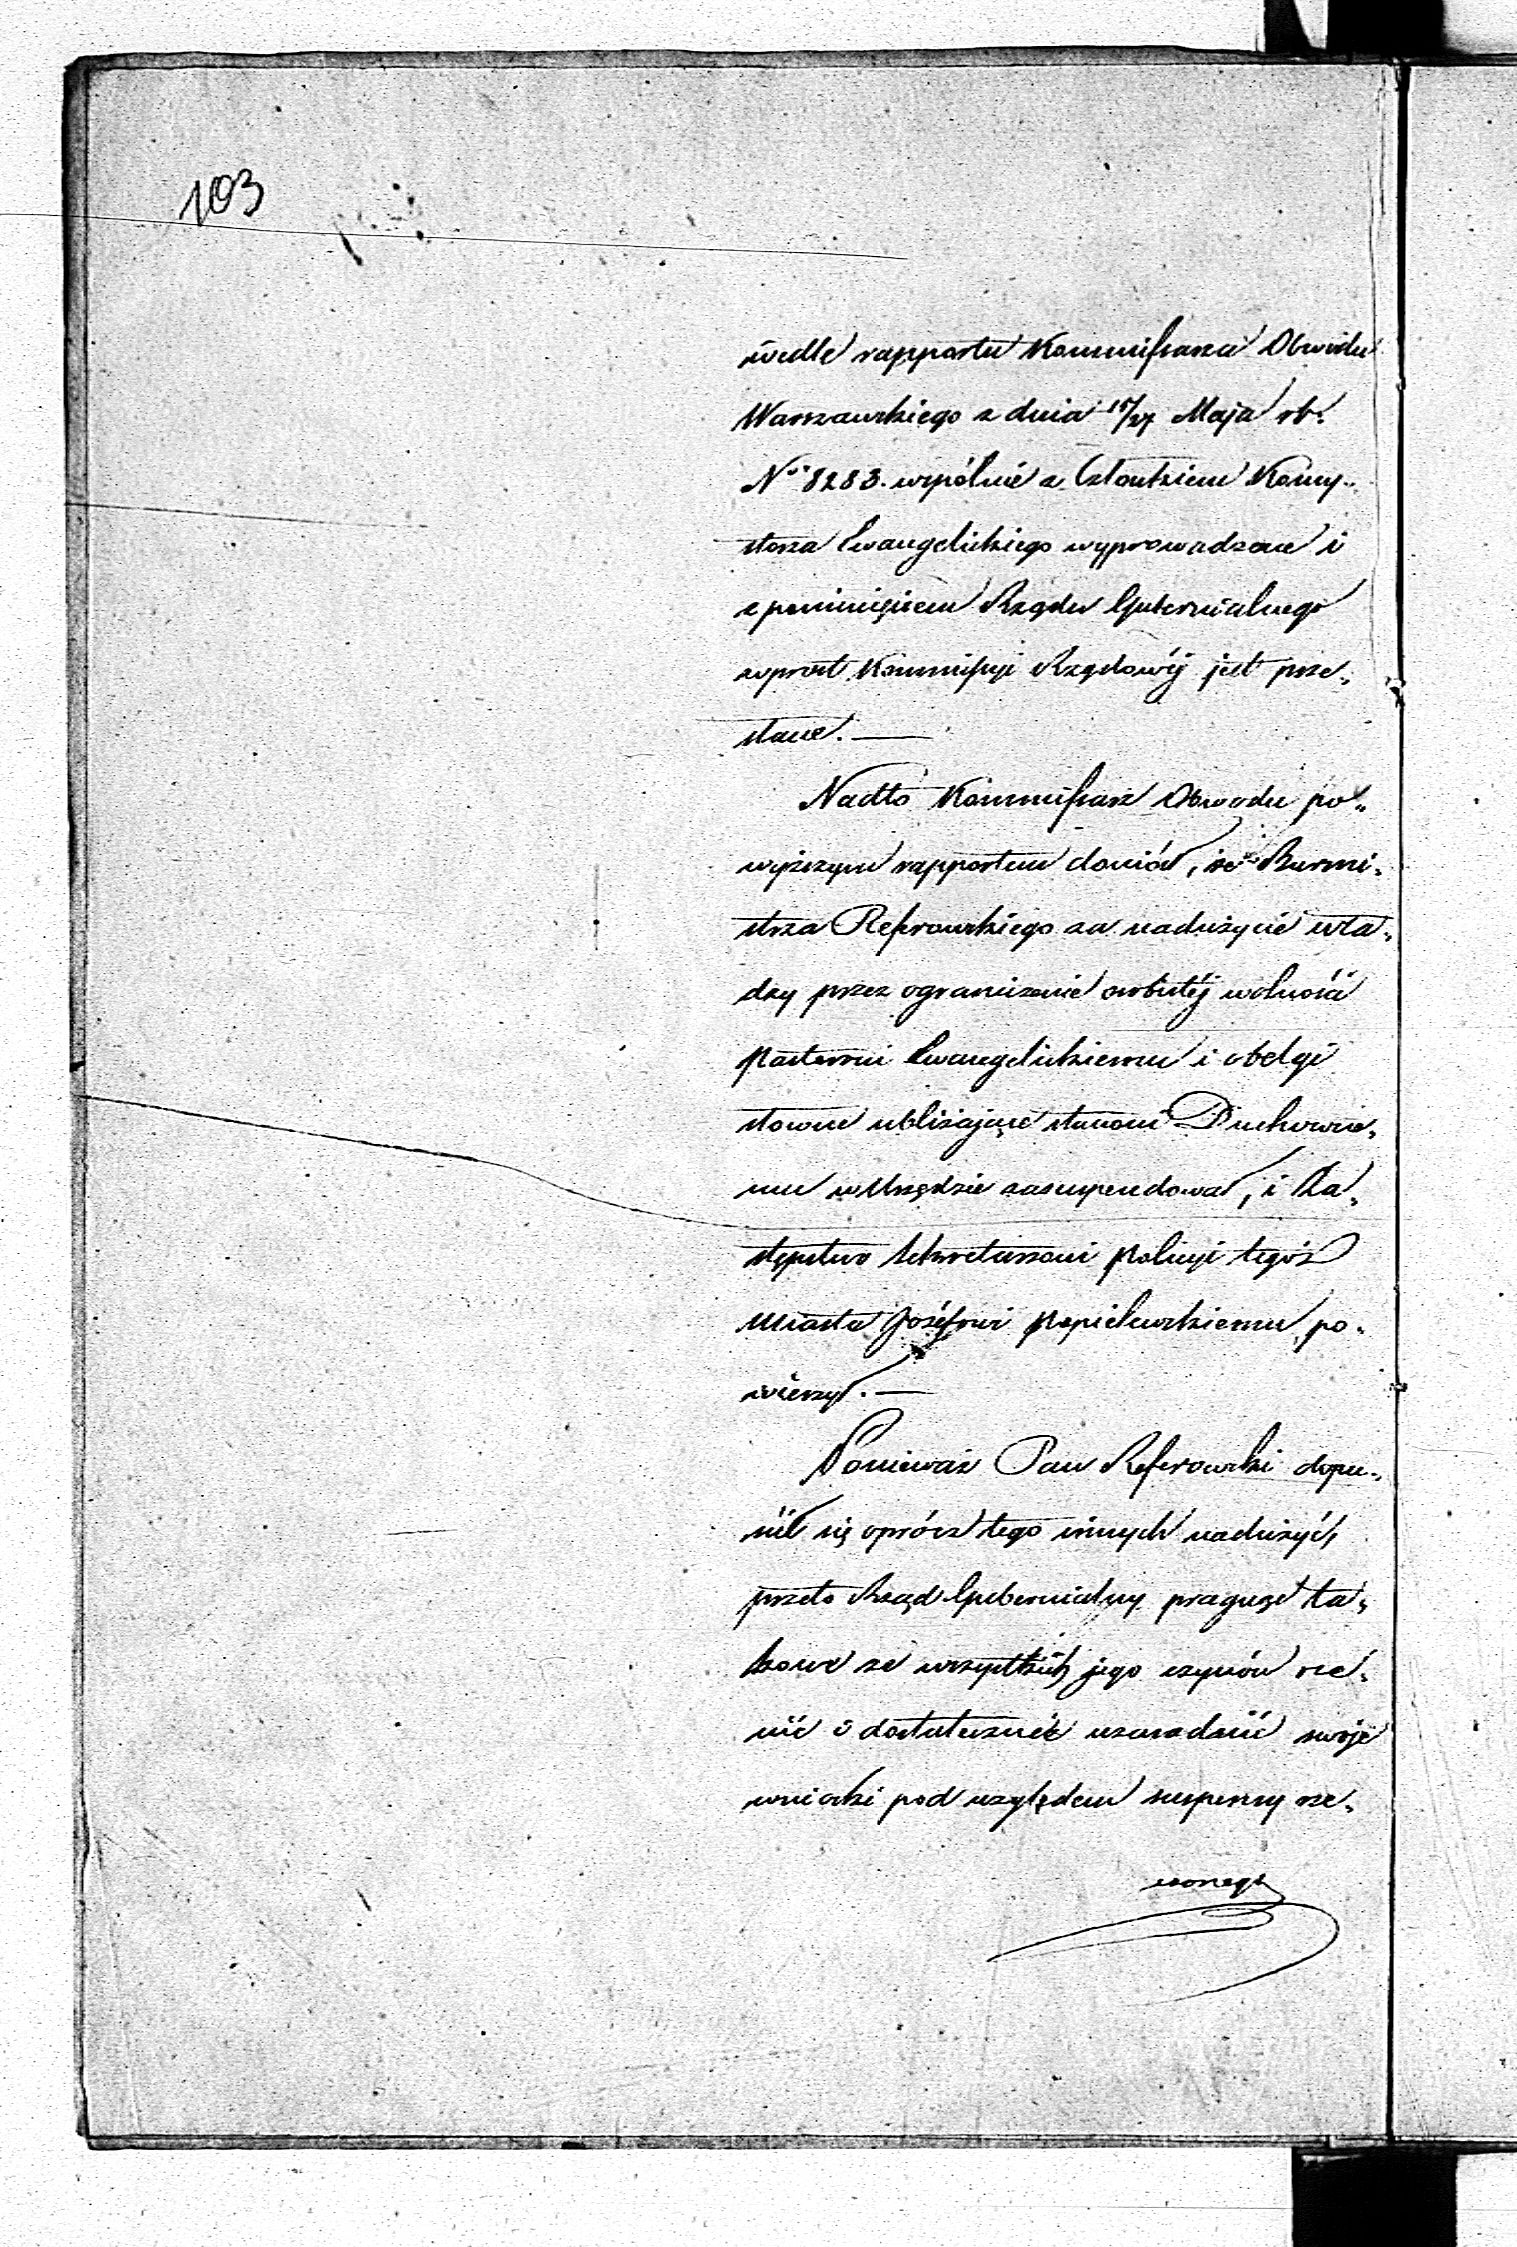 103
wedle rapportu Kommissarza Obwodu
Warszawskiego z dnia 15/27 Maja rb.
No 8283. wspólnie z Członkiem Konsy„
storza Ewangelickiego wyprowadzone i
z pominięciem Rządu Gubernialnego
wprost Kommissyi Rządowéj jest prze„
słane. —
Nadto Kommissarz Obwodu po„
wyższym rapportem doniósł, że Burmi„
strza Refrowskiego za nadużycie wła„
dzy przez ograniczenie osobistéj wolności
Pastorowi Ewangelickiemu i obelgi
słowne ubliżające stanowi Duchowne„
mu w Urzędzie zasuspendował, i Za„
stępstwo Sekretarzowi Policyi tegoż
Miasta Józefowi Popielewskiemu po„
wierzył. —
Ponieważ Pan Referowski dopu„
ścił się oprócz tego innych nadużyć,
przeto Rząd Gubernialny pragnąc ta„
kowe ze wszystkich jego czynów oce„
nić i dostatecznie uzasadnić swoje
wnioski pod względem suspensy rze„
czonego